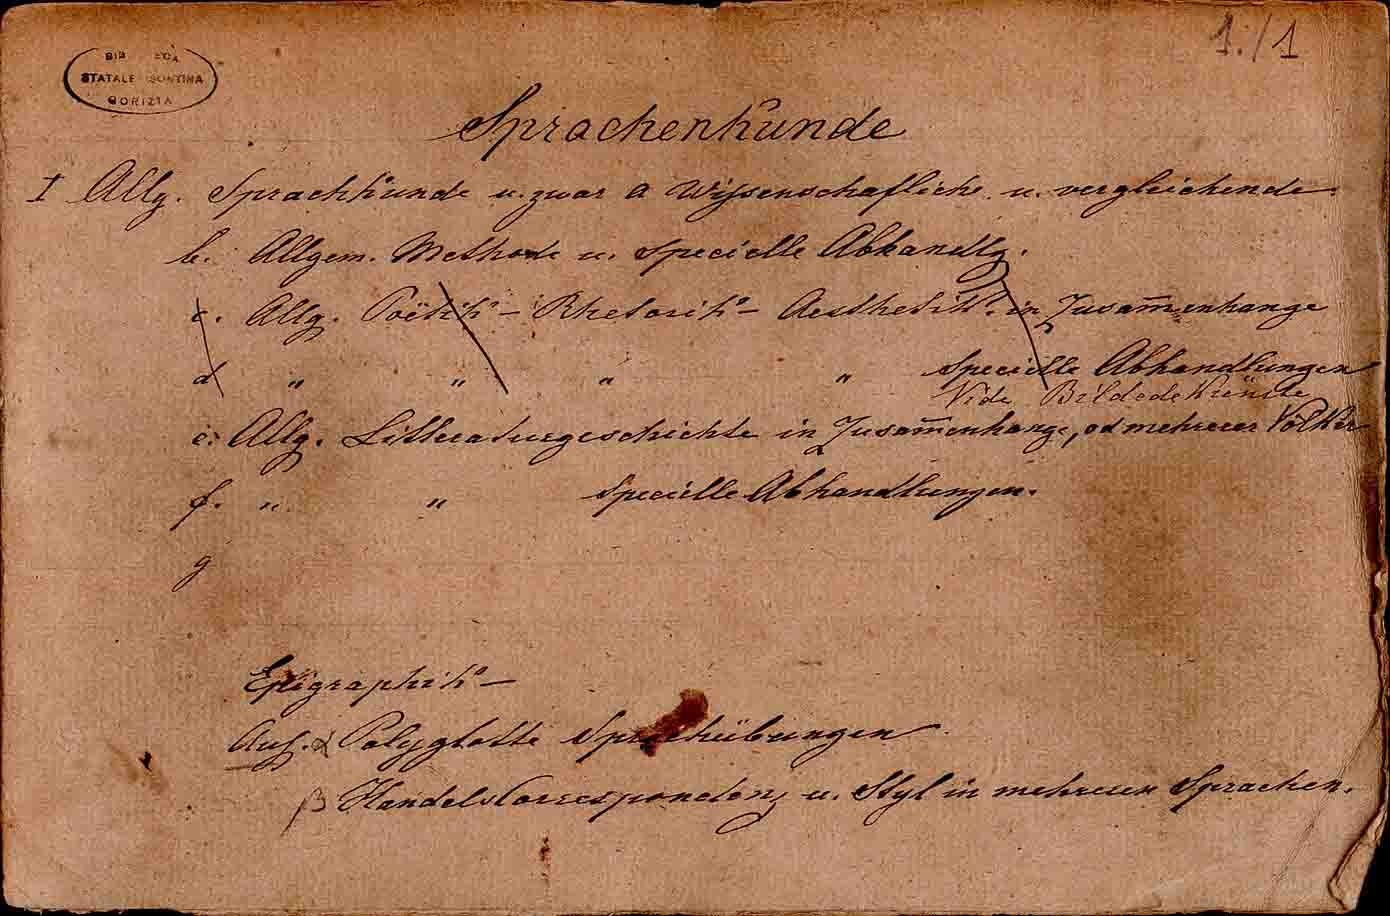 1./1
BIB ECA
STATALE ISONTINA
GORIZIA
Sprachenkunde
I Allg. Sprachkunde u. zwar a Wissenschaftliche u. vergleichende
b. Allgem. Methode u. specielle Abhandlg.
c. Allg. Poëtik – Rhetorik – Aesthetik in Zusam̅enhange
d " " " " specielle Abhandlungen
Vide Bildede Künste
e. Allg. Litteraturgeschichte in Zusam̅enhange, od mehrerer Völker
f. " " specielle Abhandlungen.
g
Epigraphik –
α Polyglotte Sprachübungen
β Handelscorrespondenz u. Styl in mehreren Sprachen.